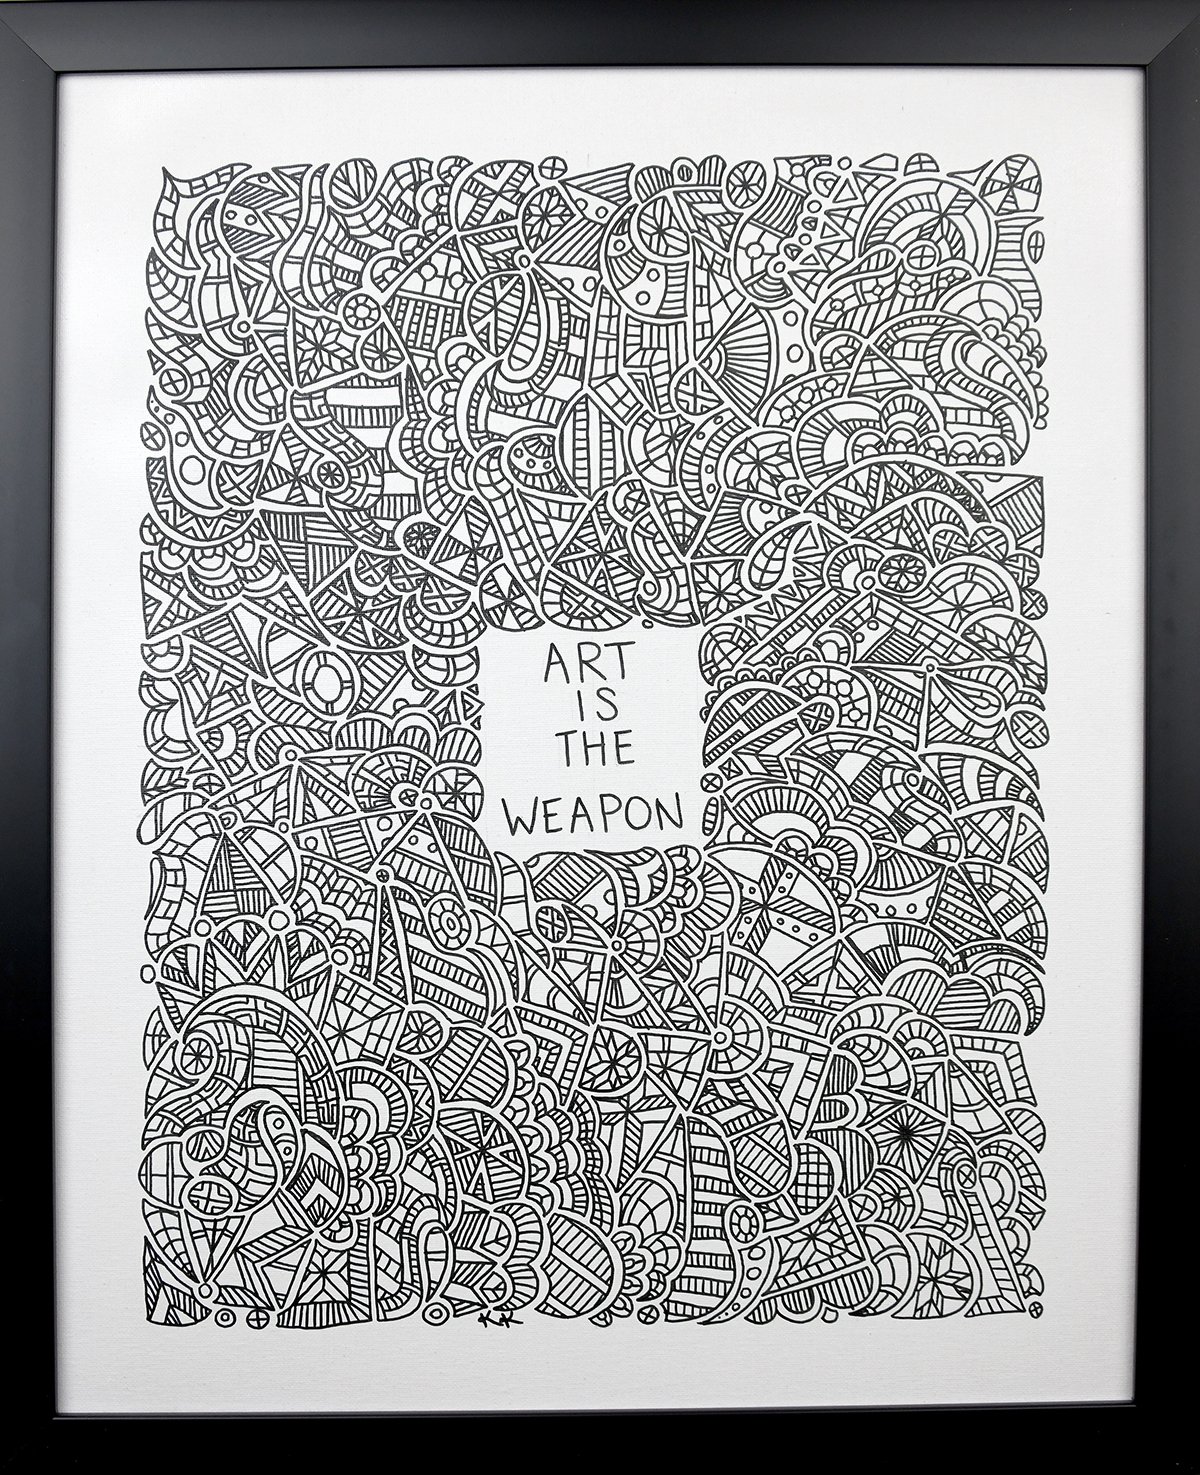 ART
IS
THE
WEAPON
KK